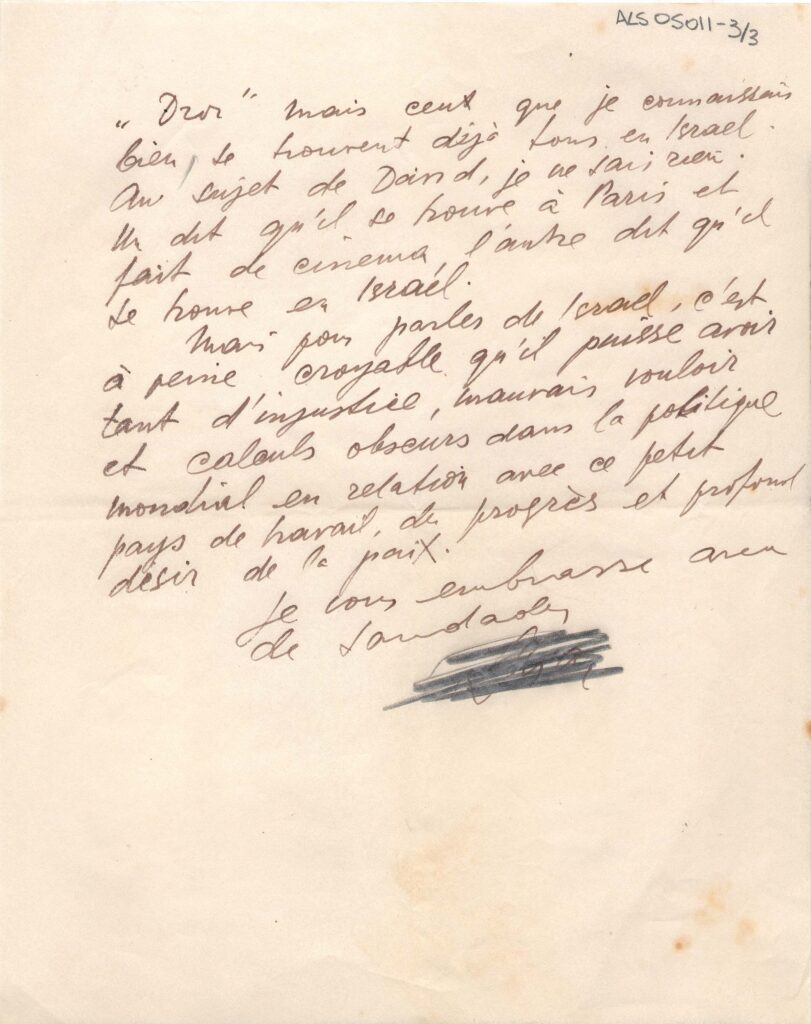 ALS 05011-3/3
„ Dror " mais ceux que je connaissais
bien, se trouvent déjà tous en Israel.
Au sujet de David, je ne sais rien.
Un dit qu'il se trouve à Paris et
fait de cinema, l'autre dit qu'il
se trouve en Israél.
Mais pour parler de Israel, c'est
à peine croyable qu'il puisse avoir
tant d'injustice, mauvais vouloir
et calculs obscurs dans la politique
mondial en relation avec ce petit
pays de travail, de progrès et profond
désir de la paix.
Je vous embrasse avec
de saudades